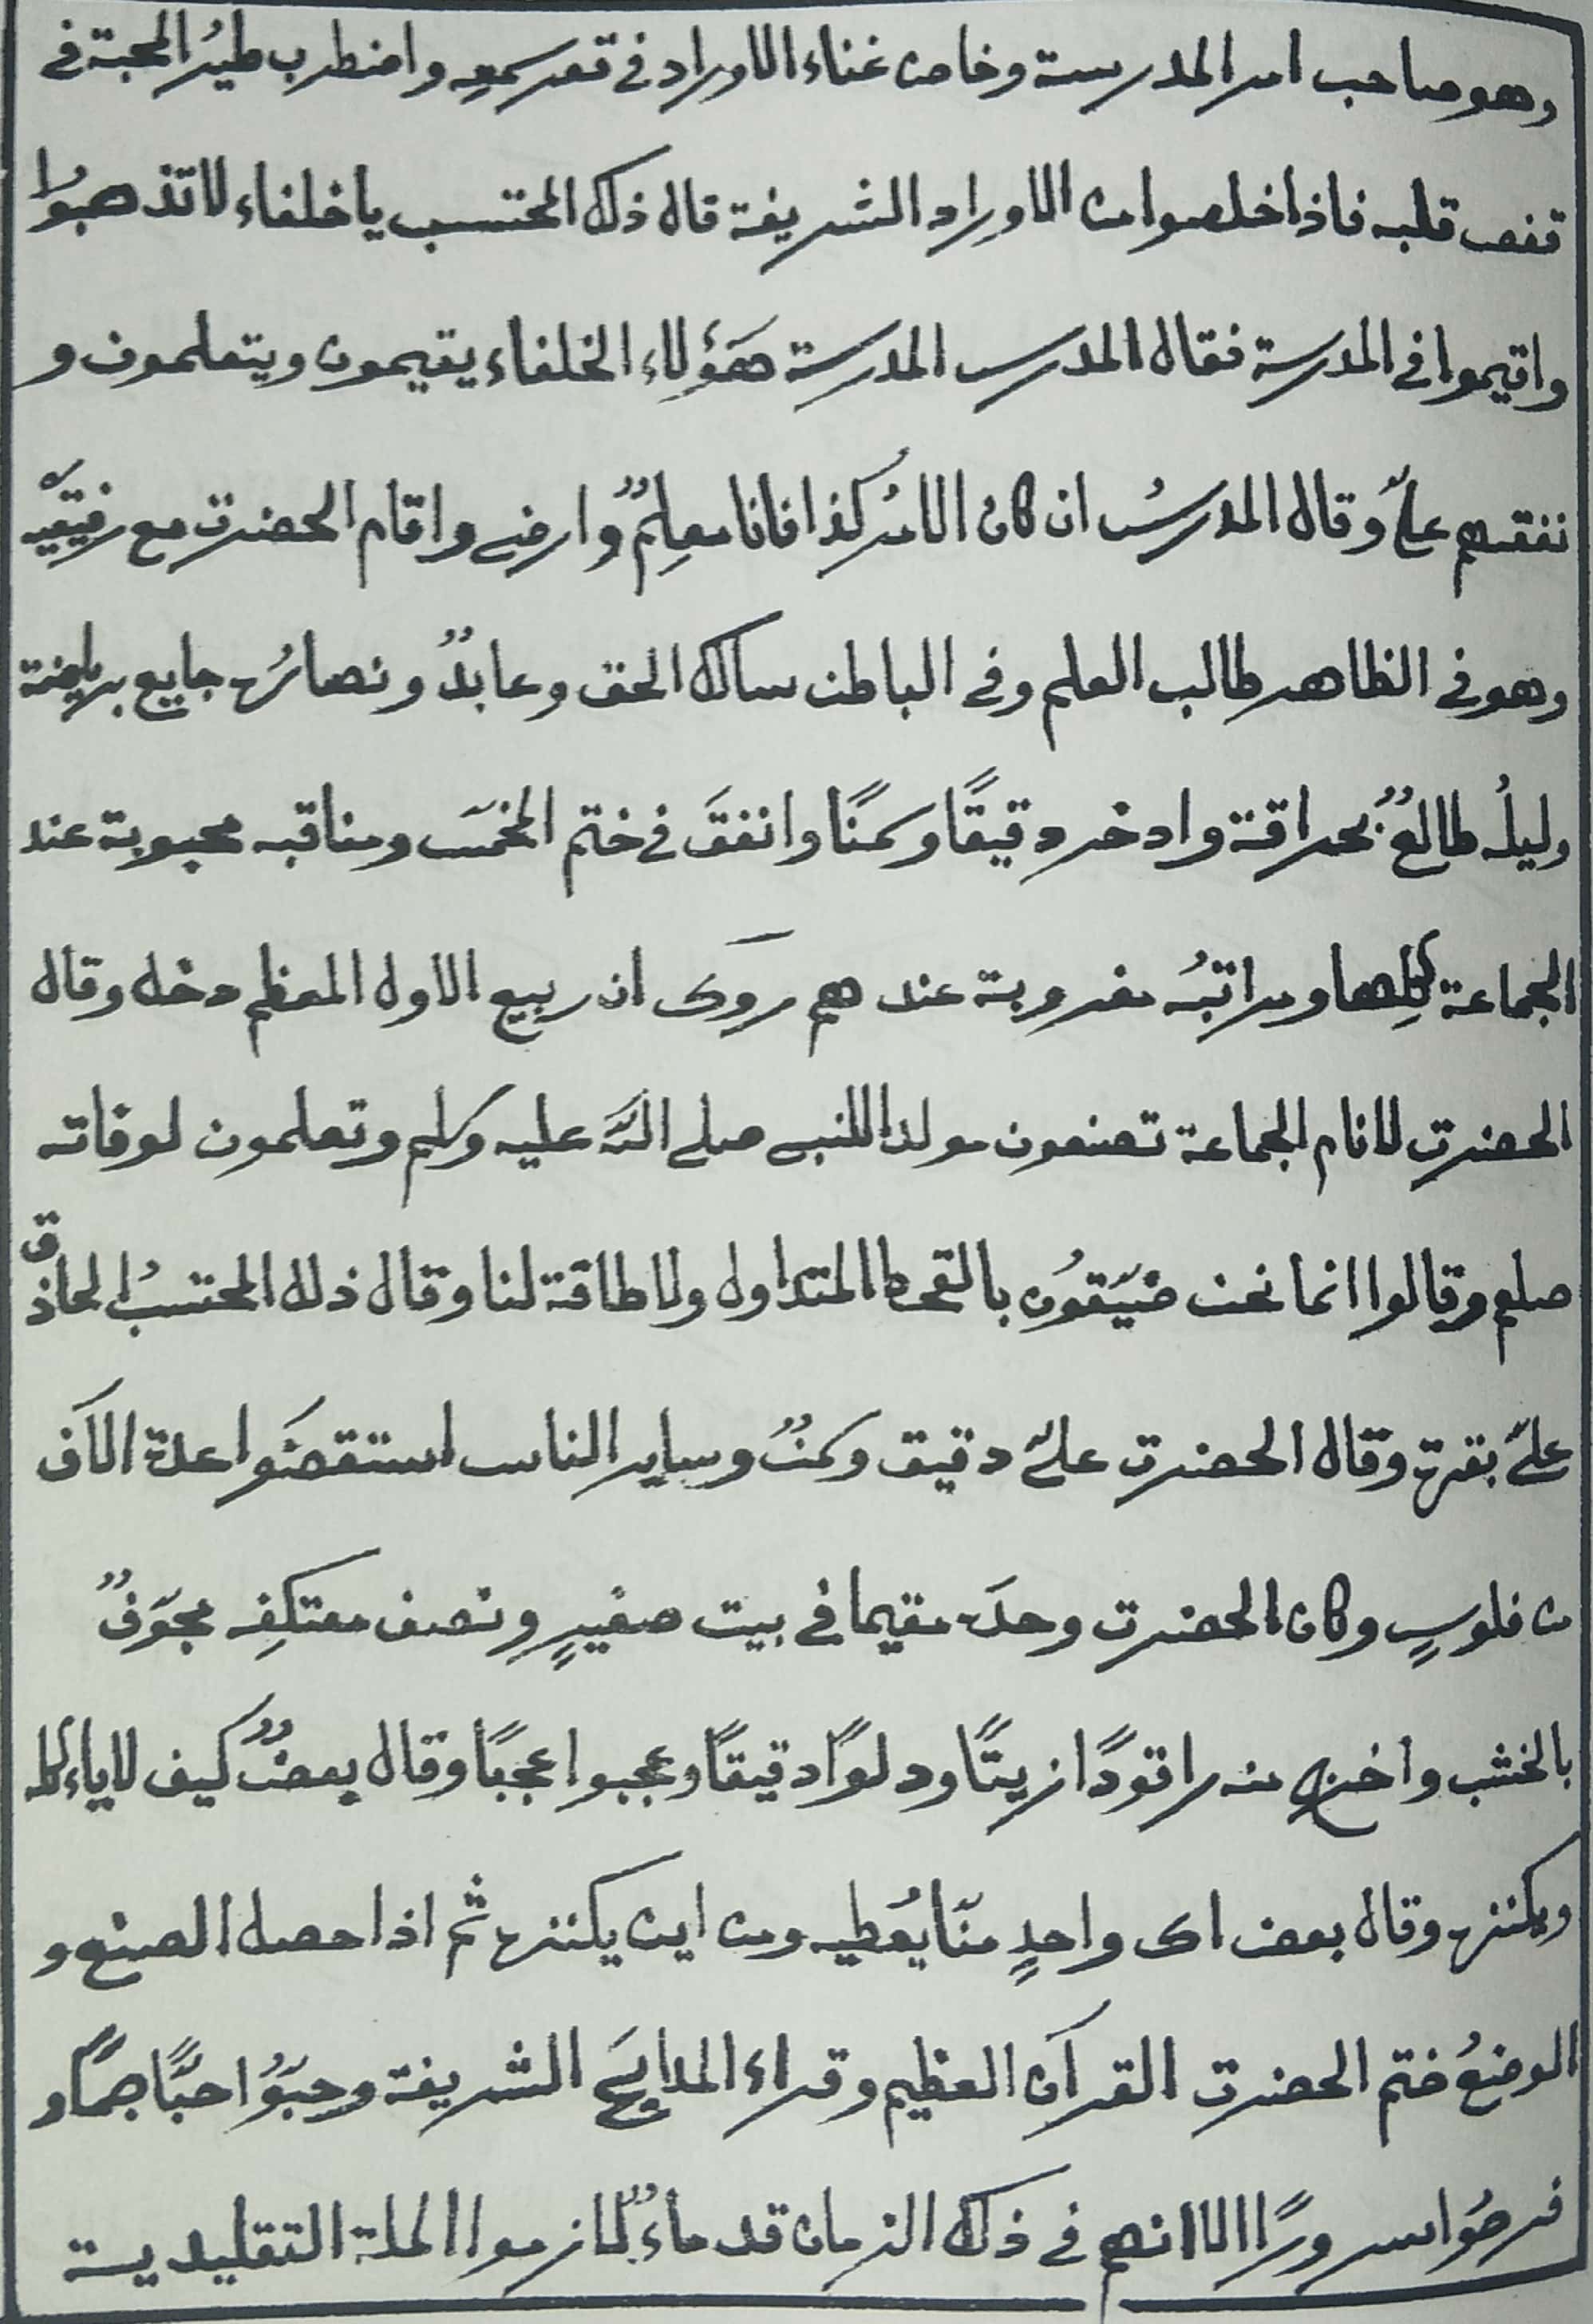 وهو صاحب امر المدرسة وخاص غناء الاوراد في قعر سمعه واضطرب طيرُ المحبة في
قفص قلبه فاذا خلصوا من الاوراد الشريفة قال ذلك المحتسب يا خلفاء لا تذهبوُا
واقيموا في المدرسة فقال المدرس المدرسة هَؤُلاءِ الخلفاء يقيمون ويتعلمون و
نفقتهم عليّ وقال المدرسُ ان كان الامرُ كذا فانا معلِمٌ وارضى واقام الحضرت مع رفيقَيه
وهو في الظاهر طالب العلم وفي الباطن سالك الحق وعابدٌ ونصارُه جايع برياضة
وليلُه طالعٌ بحراقة وادخر دقيقًا وسمنًا وانفقَ في ختم المخمسَ ومناقبه محبوبة عند
الجماعة كلِها ومراتبُه مغروبة عند هم روَى ان ربيع الاول المعظم دخل وقال
الحضرت لانام الجماعة تصنعون مولد اللنبي صلى اللّه عليه وسلم وتعلمون لوفاته
صلعم وقالوا انما نحن ضَيَقوُن بالقحط المتداول ولا طاقة لنا وقال ذلك المحتسبُ الحاذق
عليّ بقرة وقال الحضرت عليّ دقيق وسمنٌ وساير الناس استقصَوا عدة الآف
من فلوسٍ وكان الحضرت وحدَه مقيما في بيت صغيرٍ ونصف معتكِفِه مجوَفٌ
بالخشب واخرج منه راقودًا زيتًا ودلوًا دقيقًا وعجبوا عجبًا وقال بعضٌ كيف لا ياءكله
ويكنزه وقال بعض اى واحدٍ منّا يعُطيه ومن اين يكنزه ثم اذا حصل الصنع و
الوضعُ ختم الحضرت القرآن العظيم وقراء المدايحَ الشريفة وحبَوُا حبًّا جمًّا و
فرحوُا سرورًا الا انهم في ذلك الزمان قدماءٌ لازموا الملة التقليدية